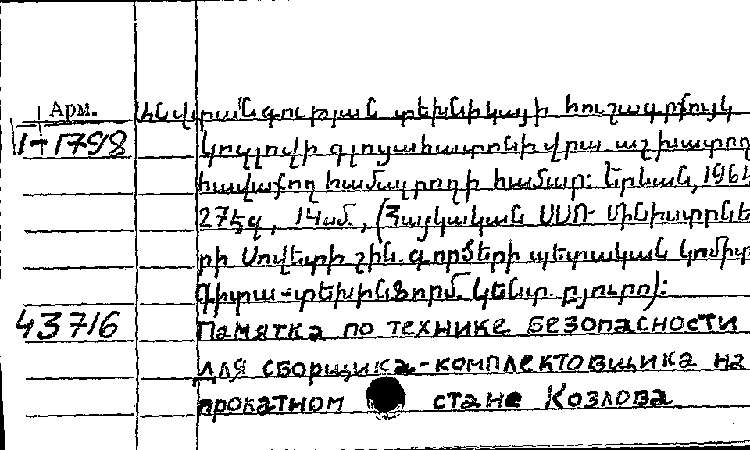 Арм. Անվտանգության տեխնիկայի հուշագրույկ
1-1798 Կոզլովի գլոցահատոնի վրա աշխատող
հավաքող համալրողի համար: Երևան, 196
27էջ, 14սմ., (Հայկական ՍՍՌ Մինիստրնե
րի Սովետի շին. գործերի պետական կոմիտ
Գիտա-տեխ. ինֆորմ. կենտր. բյուրո):
43716 Памятка по технике безопасности
для сборщика-комплектовщика на
прокатном стане Козлова